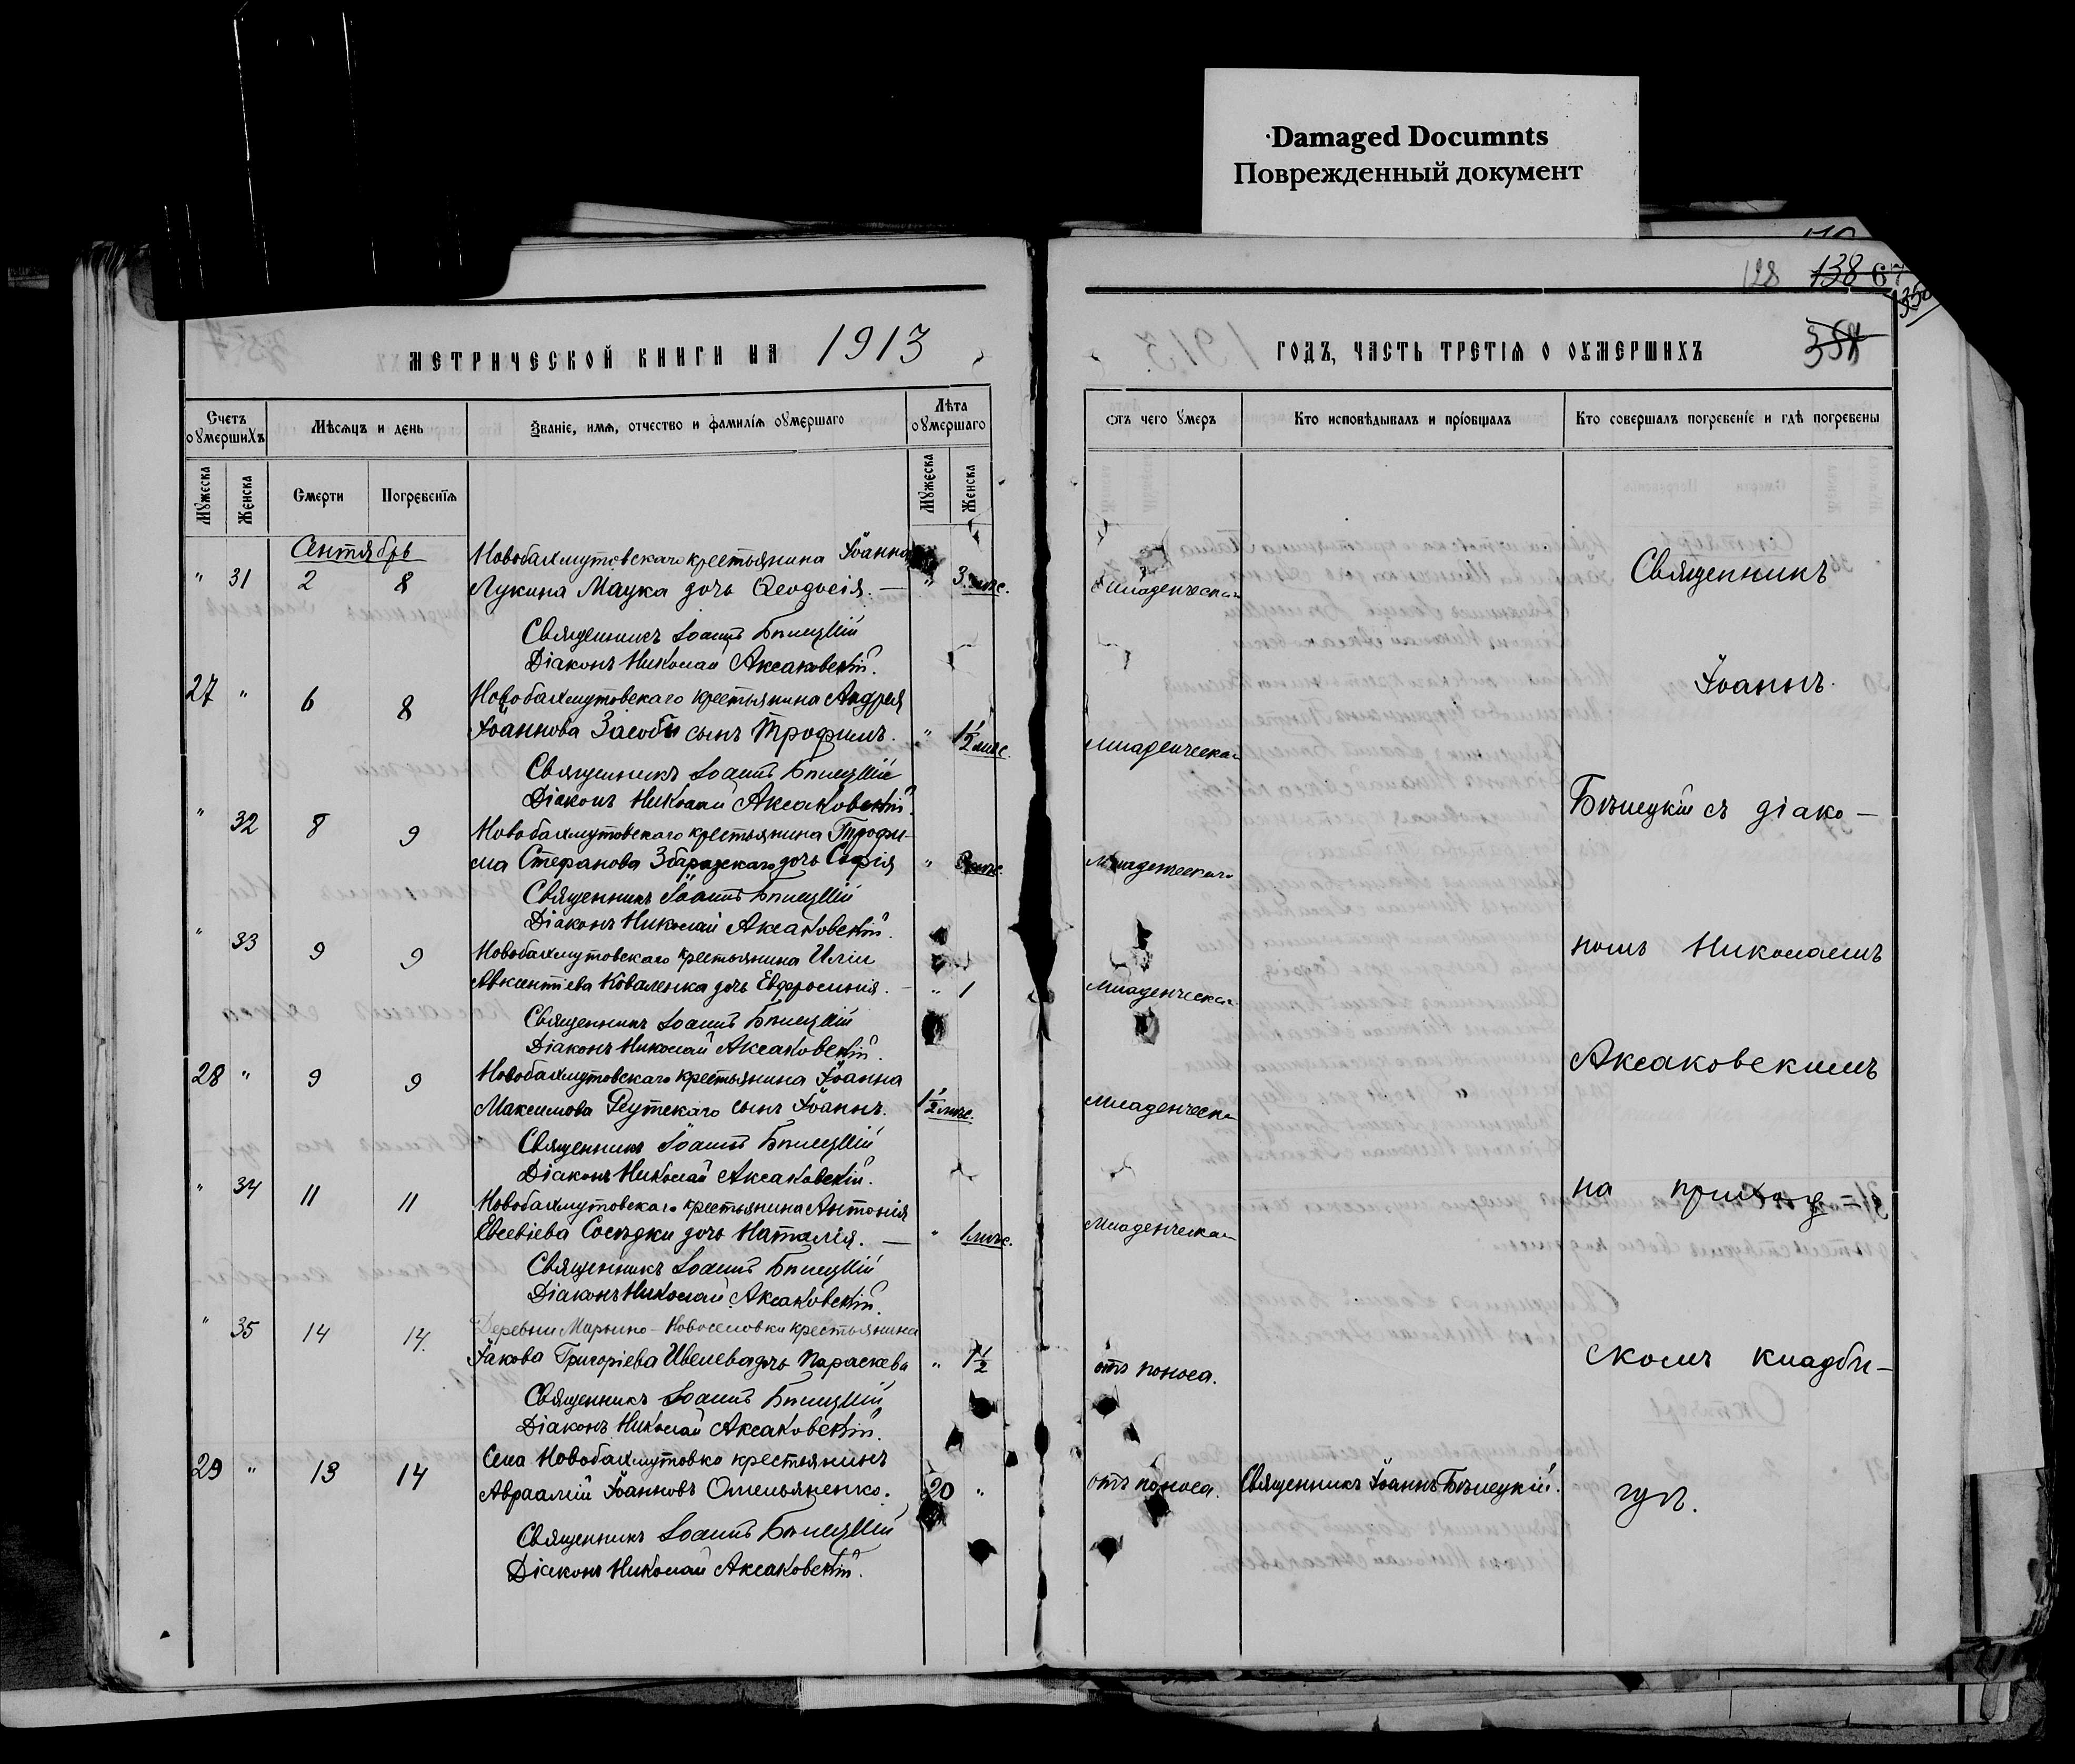 Damaged Documnts
Поврежденный документ
128 138 67
350
МЕТРИЧЕСКОЙ КНИГИ НА 1913
ГОДЪ, ЧАСТЬ ТРЕТІЯ О ОУМЕРШИХЪ
Счетъ оумершихъ
Мѣсяцъ и день
Званіе, имя, отчество и фамилія оумершаго
Лѣта оумершаго
отъ чего умеръ
Кто исповѣдывалъ и пріобщалъ
Кто совершалъ погребеніе и гдѣ погребены
Мужеска
Женска
Смерти
Погребенія
Мужеска
Женска
Сентябрь
Новобахмутовскаго крестьянина Іоанна
" 31 2 8 Лукина Маука дочь Ѳеодосія. — " 3 мѣс. Младенческая Священникъ
Священникъ Іоаннъ Бѣлецкій
Діаконъ Николай Аксаковскій.
27 " 6 8 Новобахмутовскаго крестьянина Андрея Іоаннъ.
Іоаннова Засобы сынъ Трофимъ. " 1 1/2 мѣс. младенческая
Священникъ Іоаннъ Бѣлецкій
Діаконъ Николай Аксаковскій.
" 32 8 9 Новобахмутовскаго крестьянина Трофи- Бѣлецкій съ діако—
ма Стефанова Збаразскаго дочь Софія " мѣс. Младенческая
Священникъ Іоаннъ Бѣлецкій
Діаконъ Николай Аксаковскій.
" 33 9 9 Новобахмутовскаго крестьянина Иліи номъ Николаемъ
Авксентіева Коваленка дочь Евфросинія. - " 1 Младенческая
Священникъ Іоаннъ Бѣлецкій
Діаконъ Николай Аксаковскій.
28 " 9 9 Новобахмутовскаго крестьянина Іоанна Аксаковскимъ
Максимова Реутскаго сынъ Іоаннъ. 1 1/2 мѣс. младенческая
Священникъ Іоаннъ Бѣлецкій
Діаконъ Николай Аксаковскій.
" 34 11 11 Новобахмутовскаго крестьянина Антонія на приход
Евсевіева Сосѣдки дочь Наталія. — " 1 мѣс. Младенческая
Священникъ Іоаннъ Бѣлецкій
Діаконъ Николай Аксаковскій.
" 35 14 14. Деревни Марьино-Новоселовки крестьянина
Іакова Григоріева Ивлева дочь Параскева " 1 1/2 отъ поноса. скомъ кладби—
Священникъ Іоаннъ Бѣлецкій
Діаконъ Николай Аксаковскій.
29 " 13 14 Села Новобахмутовко крестьянинъ
Авраамій Іоанновъ Омельяненко. 20 " отъ поноса. Священникъ Іоаннъ Бѣлецкій. щѣ.
Священникъ Іоаннъ Бѣлецкій
Діаконъ Николай Аксаковскій.